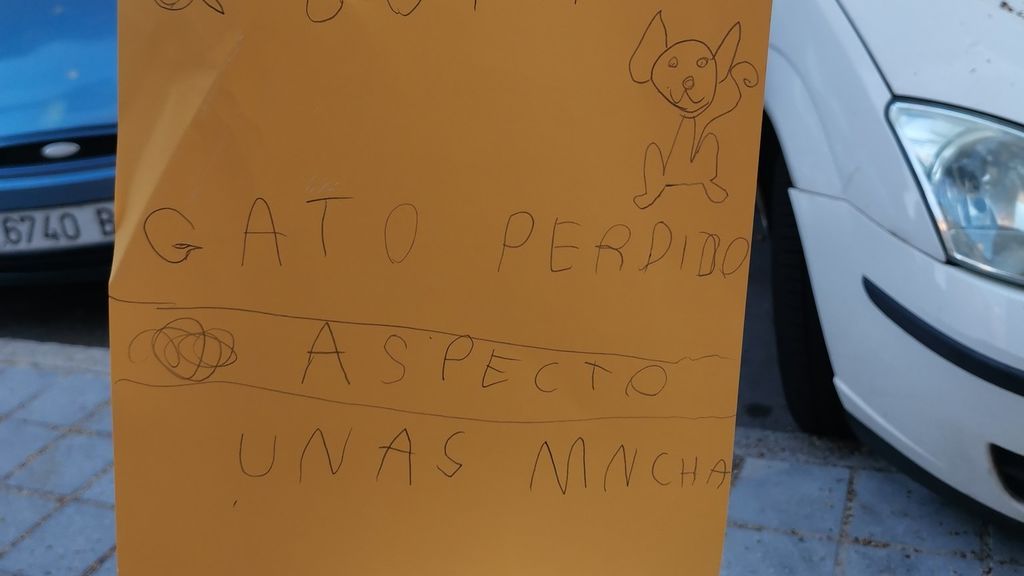 GATO PERDIDO
6740 B
ASPECTO
UNAS MNCHA